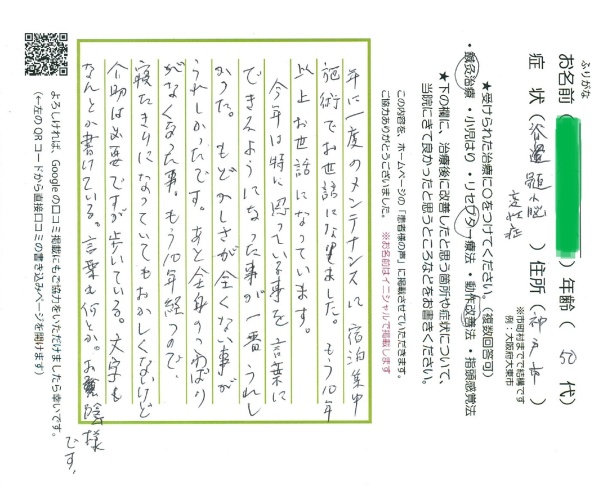 ふりがな
お名前（　　　　）年齢（50代）
症状（脊髄小脳変性症）住所（神戸市）
※市町村までで結構です
例：大阪府大東市
★受けられた治療に○をつけてください。（複数回答可）
・鍼灸治療・小児はり・リセプター療法・動作改善法・指頭感覚法
★下の欄に、治療後に改善したと思う箇所や症状について、
当院にきて良かったと思うところなどをお書きください。
この内容を、ホームページの「患者様の声」に掲載させていただきます。
ご協力ありがとうございました。※お名前はイニシャルで掲載します
年に一度のメンテナンスに宿泊集中
施術でお世話になりました。もう10年
以上お世話になっています。
今年は特に思っている事を言葉に
できるようになった事が一番うれし
かった。もどかしさが全くない事が
うれしかったです。あと全身のつっぱり
がなくなった事。もう10年経つので、
寝たきりになっていてもおかしくないけど
介助は必要ですが歩いている。文字も
なんとか書けている。言葉も何とか。お陰様
です。
よろしければ、Googleの口コミ掲載にもご協力をいただけましたら幸いです。
（←左のQRコードから直接口コミの書き込みページを開けます）